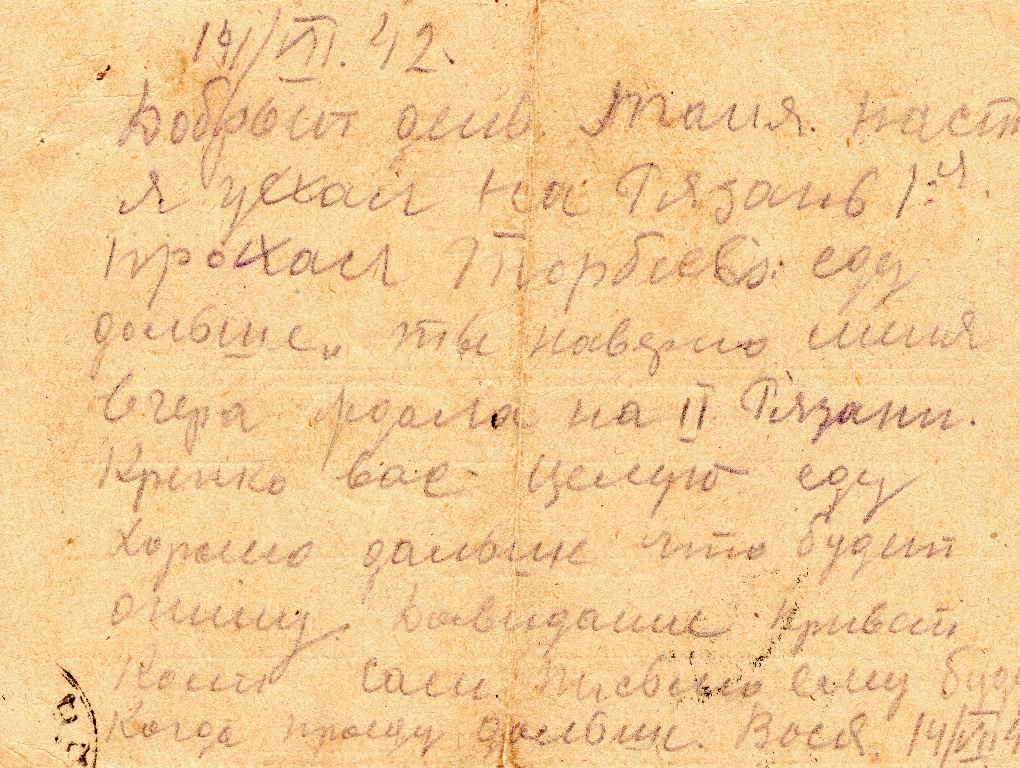 14/VII. 42.
Добрый день Таня. Наст
я уехал на Рязань 1:ч.
прохал Торбеево. еду
дальше, ты наверно меня
вчера ждала на II Рязани.
Крепко вас целую еду
хорошо дальше что будит
опишу. Довидание Привет
Коли сам писмо ему буду
Когда проеду дальше. Вася 14/VII 4